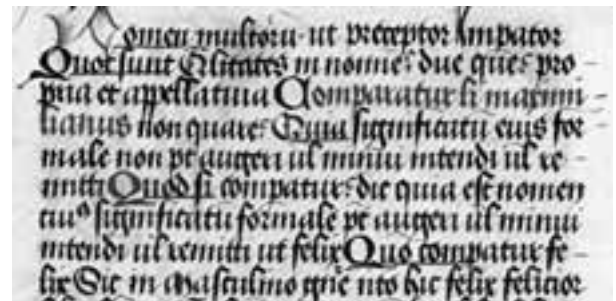 Nomen multorũ ut preceptor Impator
Quot sunt Q̃litates in nomine due que pro
pria et appellatiua Comparatur li maximi
lianus non quare Quia significatũ eius for
male non pt augeri ul minui intendi ul re
mitti Quod si compatur dic quia est nomen
cuiꝰ significatũ formale pt augeri ul minui
intendi ul remitti ut felix Quo compatur fe
lix Sic in Masculino hic felix felicior